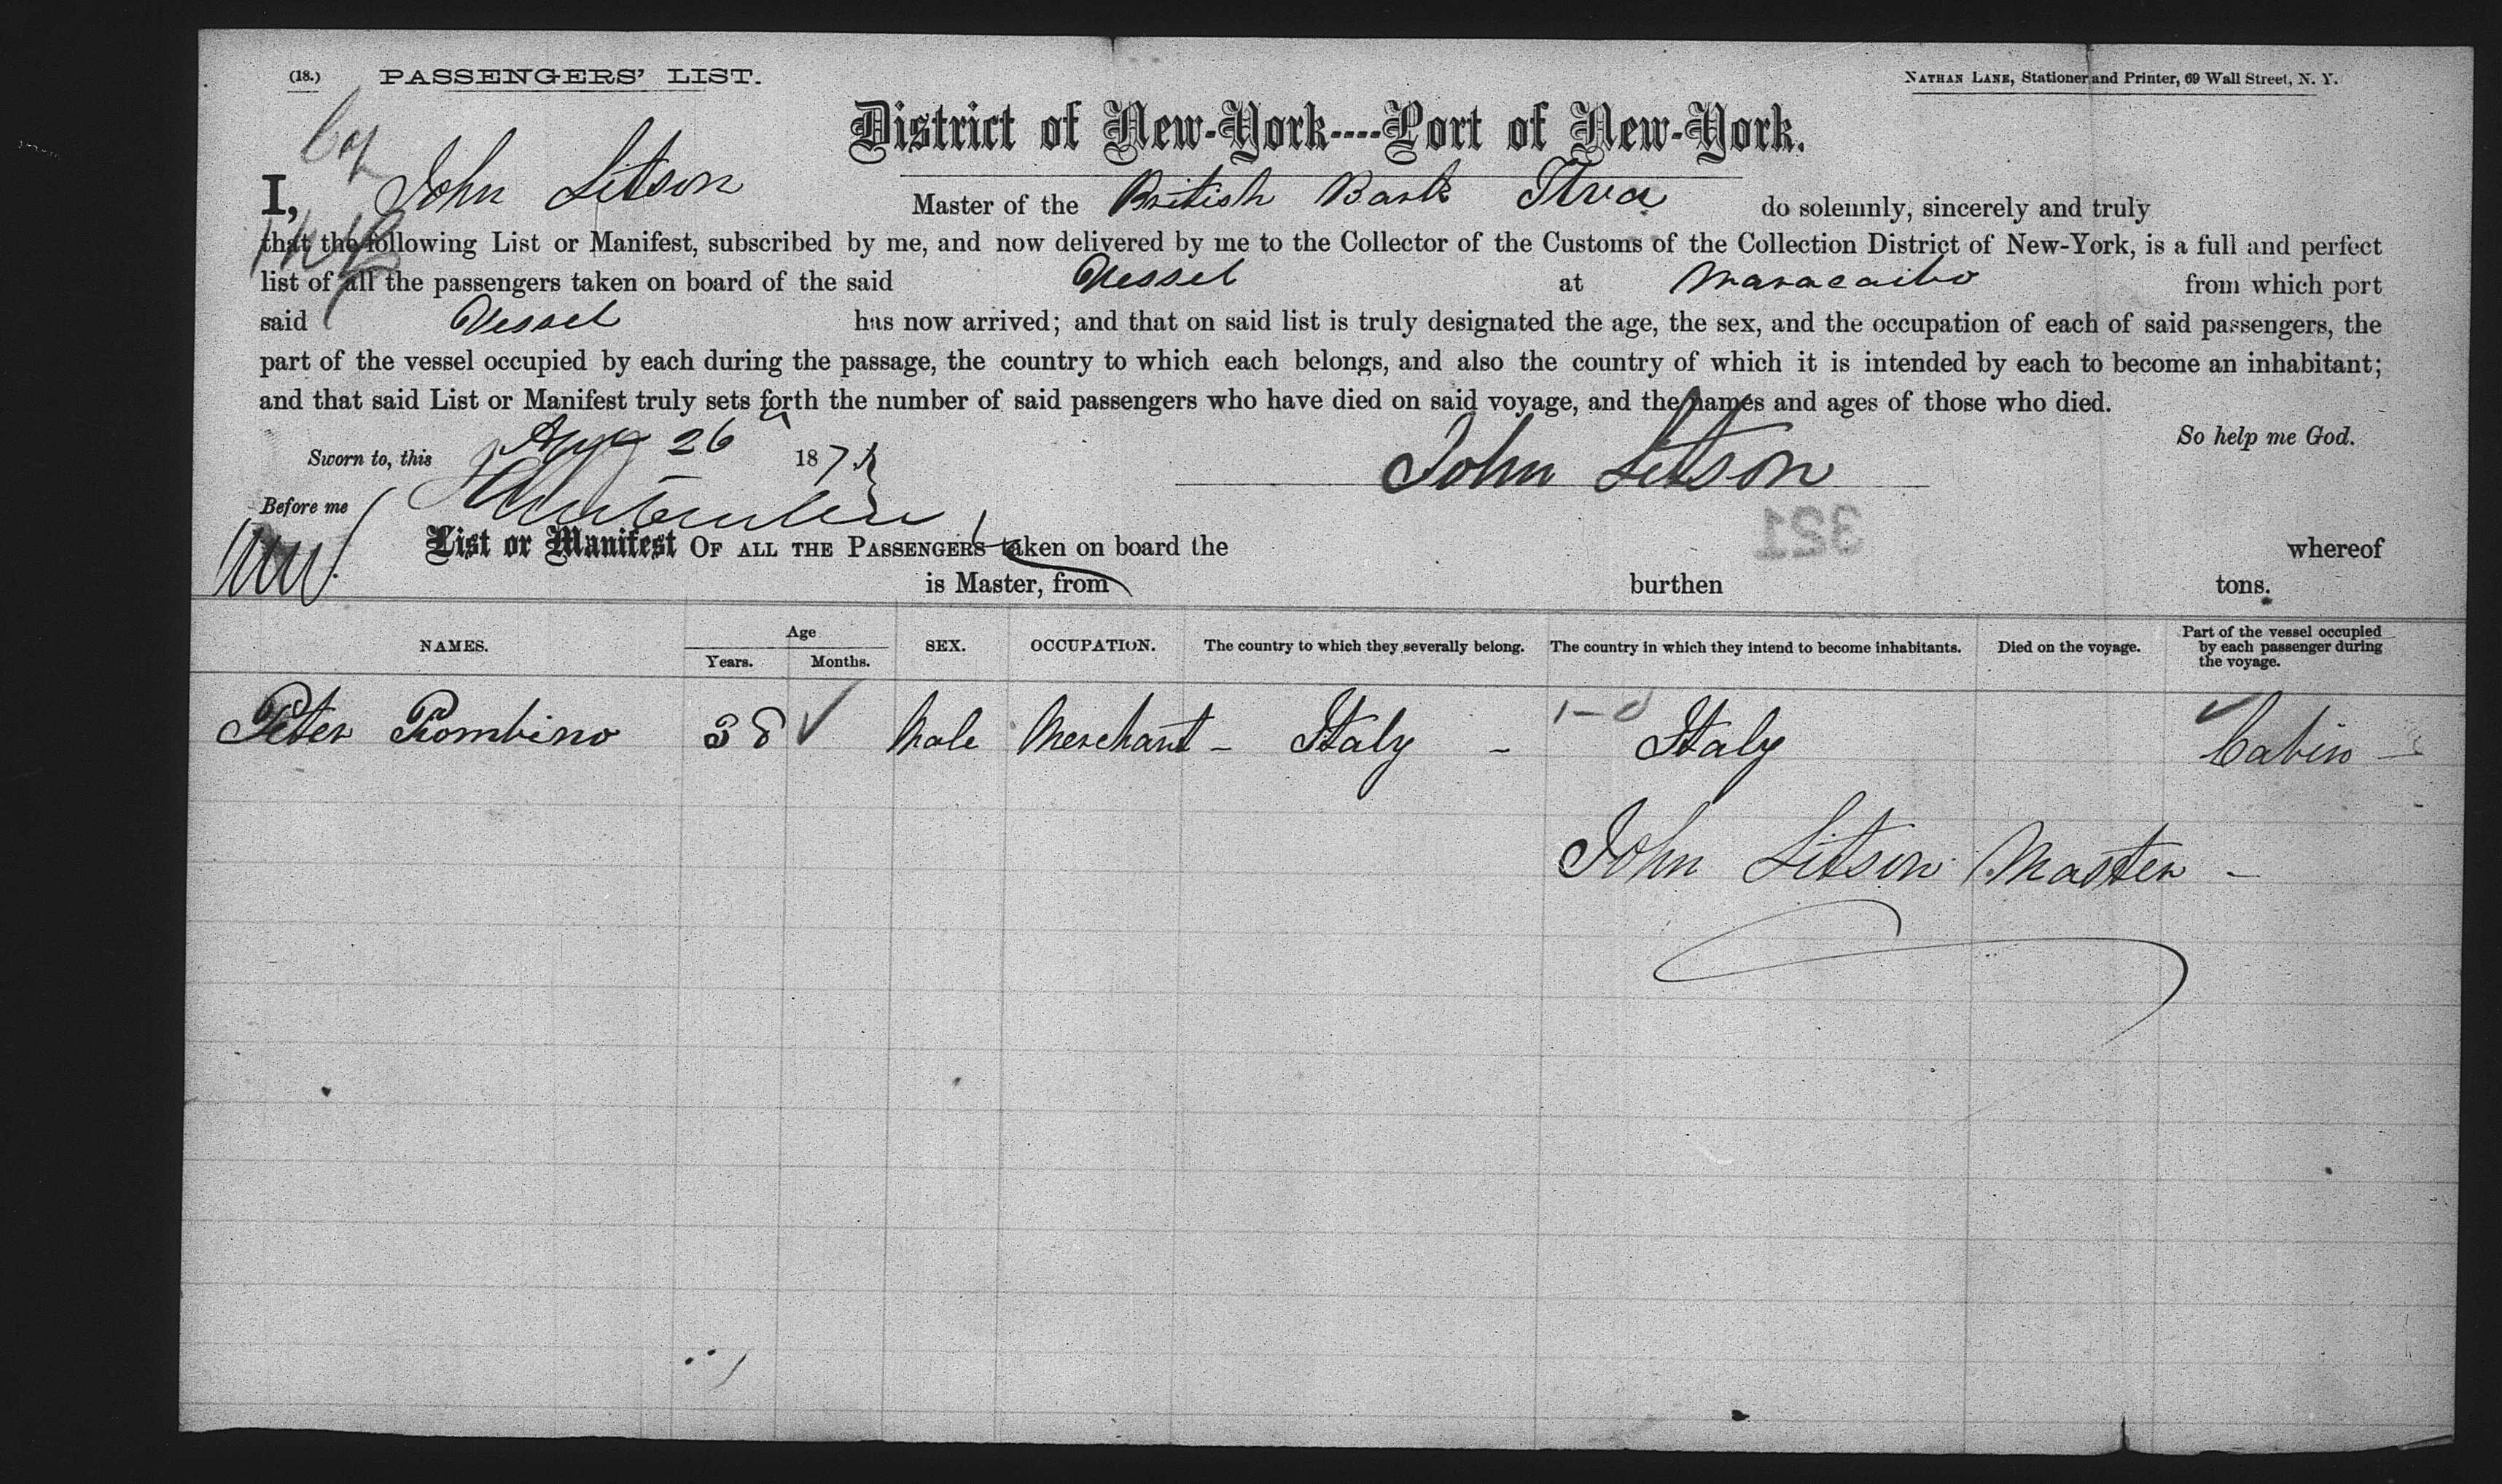 (18.) PASSENGERS' LIST.
NATHAN LANE, Stationer and Printer, 69 Wall Street, N. Y.
District of New-York----Port of New-York.
I, John Litson Master of the British Bark do solemnly, sincerely and truly
that the following List or Manifest, subscribed by me, and now delivered by me to the Collector of the Customs of the Collection District of New-York, is a full and perfect
list of all the passengers taken on board of the said Vessel at Maracaibo from which port
said Vessel has now arrived; and that on said list is truly designated the age, the sex, and the occupation of each of said passengers, the
part of the vessel occupied by each during the passage, the country to which each belongs, and also the country of which it is intended by each to become an inhabitant;
and that said List or Manifest truly sets forth the number of said passengers who have died on said voyage, and the names and ages of those who died.
So help me God.
Sworn to, this Aug 26 187
John Litson
Before me
321
List or Manifest OF ALL THE PASSENGERS taken on board the whereof
is Master, from burthen tons.
NAMES. Age Years. Months. SEX. OCCUPATION. The country to which they severally belong. The country in which they intend to become inhabitants. Died on the voyage. Part of the vessel occupied by each passenger during the voyage.
Peter Piombino 38 Male Merchant - Italy - Italy Cabin -
John Litson Master -